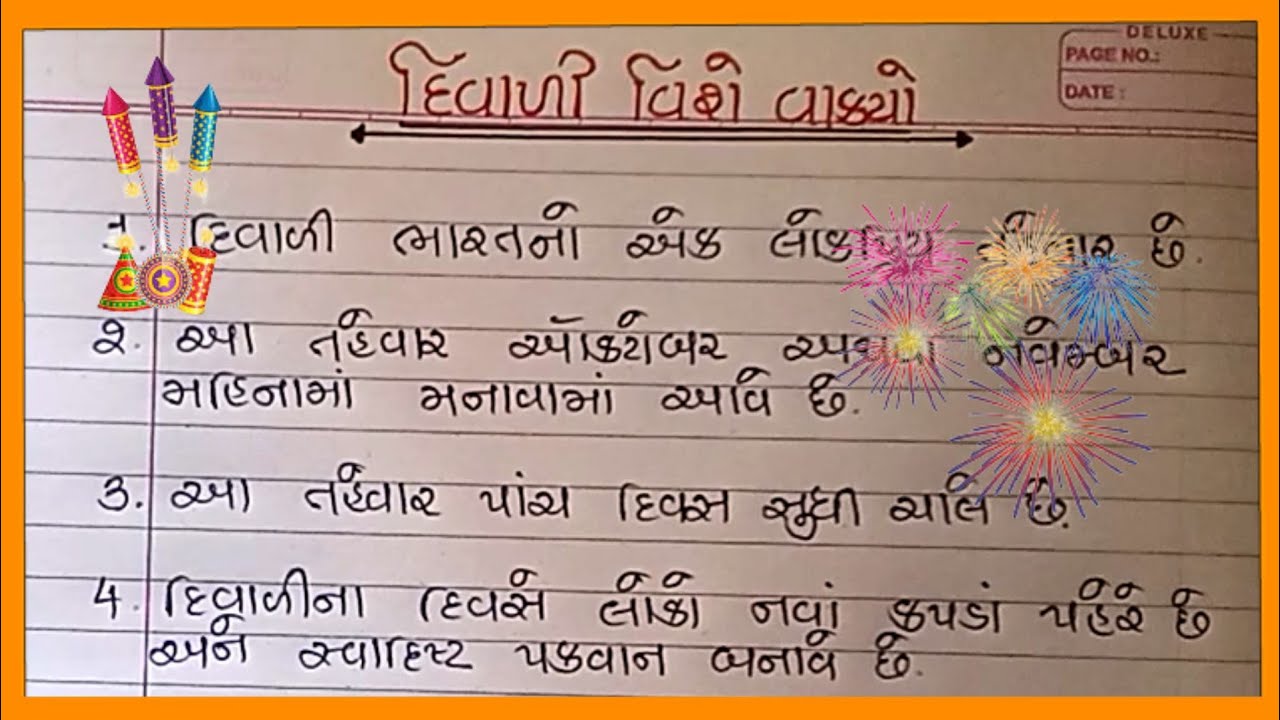 DELUXE
PAGE NO.:
DATE :
દિવાળી વિશે વાક્યો
૧. દિવાળી ભારતનો એક લોકપ્રિય તહેવાર છે.
૨. આ તહેવાર ઑક્ટોબર અથવા નવેમ્બર
મહિનામાં મનાવવામાં આવે છે.
3. આ તહેવાર પાંચ દિવસ સુધી ચાલે છે.
4. દિવાળીના દિવસે લોકો નવાં કપડાં પહેરે છે
અને સ્વાદિષ્ટ પકવાન બનાવે છે.